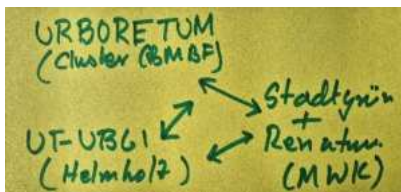 URBORETUM
(Cluster (BMBF)
Stadtgrün
+
Renatur.
(MWK)
UT-UBGI
(Helmholz)